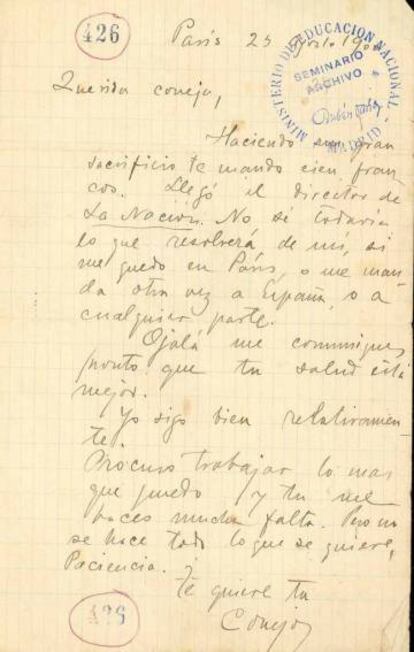 426
París 25 Agosto 190
MINISTERIO DE EDUCACION NACIONAL
SEMINARIO
ARCHIVO
Rubén Darío
MADRID
Querida coneja,
Haciendo un gran
sacrificio te mando cien fran-
cos. Llegó el director de
La Nación. No sé todavía
lo que resolverá de mí, si
me quedo en París, o me man-
da otra vez a España, o a
cualquier parte.
Ojalá me comuniques
pronto que tu salud está
mejor.
Yo sigo bien relativamen-
te.
Procuro trabajar lo mas
que puedo y tu me
haces mucha falta. Pero no
se hace todo lo que se quiere,
Paciencia.
Te quiere tu
Conejo
426